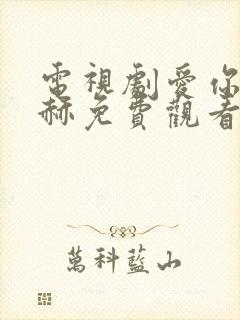 電視劇愛你
赫免費觀看
萬科藍山